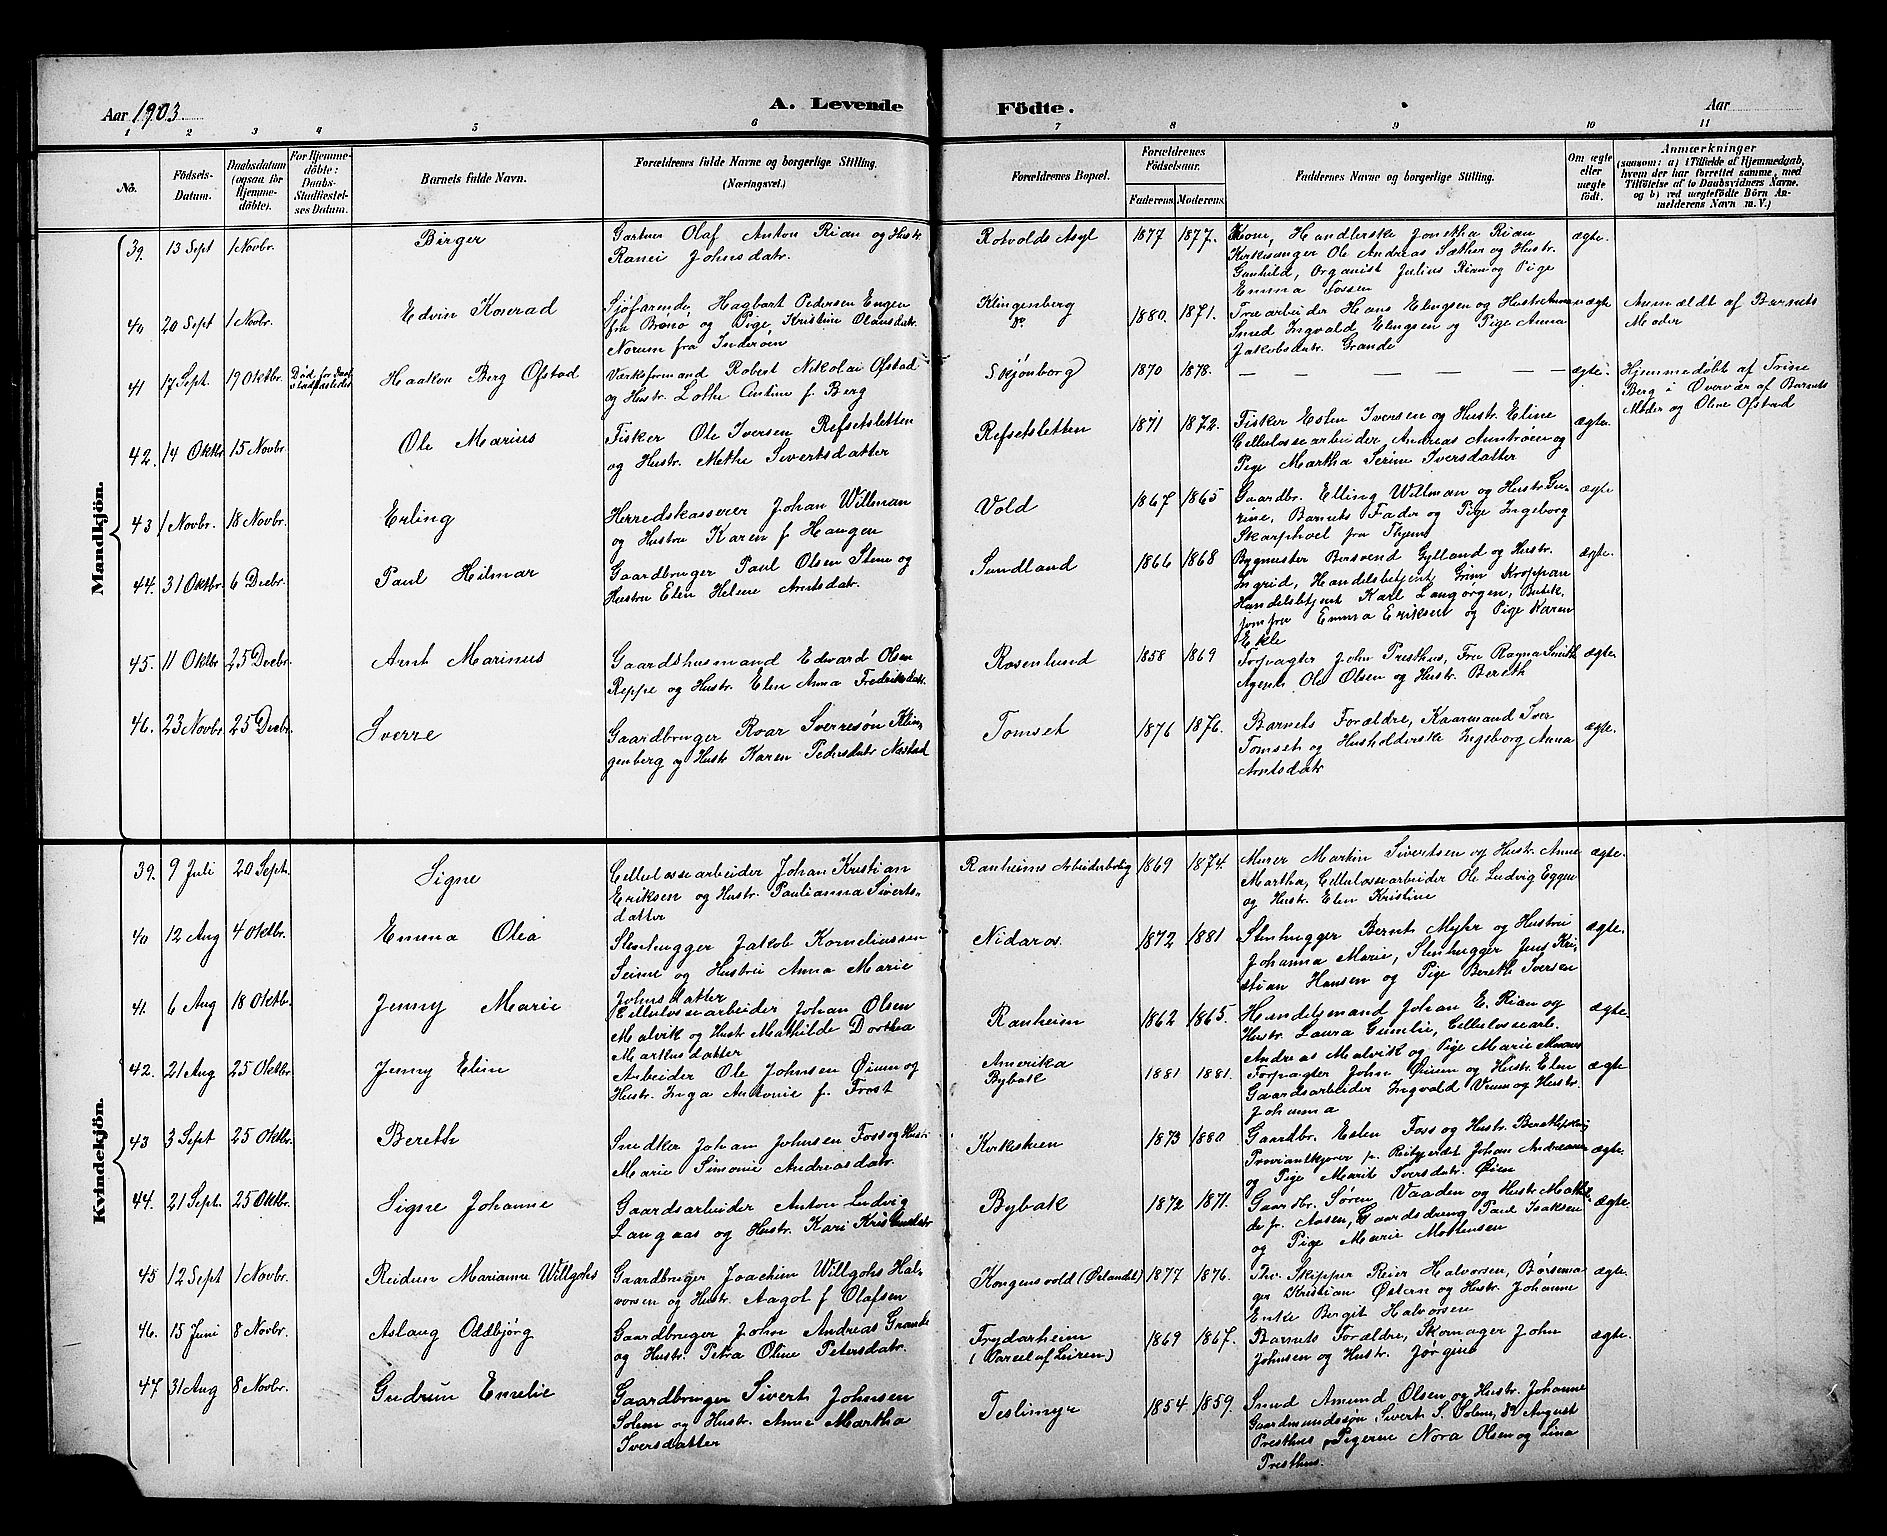 Aar 1903.
A. Levende Födte.
Aar
1 2 3 4 5 6 7 8 9 10 11
No.
Födsels-Datum.
Daabsdatum (ogsaa for Hjemmedöbte).
For Hjemmedöbte: Daabs-Stadfæstelses Datum.
Barnets fulde Navn.
Forældrenes fulde Navne og borgerlige Stilling.
(Næringsvei.)
Forældrenes Bopæl.
Forældrenes Födselsaar.
Faderens. Moderens.
Faddernes Navne og borgerlige Stilling.
Om ægte eller uægte födt.
Anmærkninger
(saasom: a) i Tilfælde af Hjemmedaab,
hvem der har forrettet samme, med
Tilföielse af to Daabsvidners Navne.
og b) ved uægtefödte Börn Anmelderens Navn m. V.)
Mandkjön.
39. 13 Sept 1 Novbr. Birger
Gartner Olaf Anton Rian og Hustr.
Ranei Johnsdatr.
Rotvolds Asyl 1877 1877.
Kone, Handlerske Jonetha Rian
Kirkesanger Ole Andreas Sæther og Hustr.
Gunhild, Organist Julius Rian og Pige
Emma Fossen
ægte.
40 20 Sept 1 Novbr. Edvin Konrad
Sjøfarende, Hagbart Pedersen Engen
fra Brønø og Pige, Kristine Olausdatr.
Norum fra Inderøen
Klingenberg
Do
1880. 1871.
Træarbeider Hans Elingsen og Hustr Anna
Smed Ingvald Elingsen og Pige Anna
Jakobsdatr. Grande
uægte
Anmældt af Barnets
Moder
41 17 Sept. 19 Oktbr. Død før Daab
stadfæstedes
Haakon Berg Ofstad
Værksformand Robert Nikolai Ofstad
og Hustr. Lothe Antine f. Berg
Skjønborg 1870 1878.
— — — — — —
ægte.
Hjemmedøbt af Trine
Berg i Overvær af Barnets
Moder og Oline Ofstad
42. 14 Oktbr 15 Novbr. Ole Marius
Fisker Ole Iversen Refsetsletten
og Hustr. Methe Sivertsdatter
Refsetsletten 1871 1872.
Fisker Esten Iversen og Hustr. Eline
Cellulosearbeider, Andreas og
Pige Martha Serine Iversdatter
ægte.
43 1 Novbr. 18 Novbr. Erling
Herredskasserer Johan Willman
og Hustru Karen f Haugen
Vold 1867 1865
Gaardbr. Elling Willman og Hustr. Gu-
rine, Barnets Fader og Pige Ingeborg
Skarphoel fra Thjems
ægte
44. 31 Oktbr 6 Decbr. Paul Hilmar
Gaardbruger Paul Olsen Stene og
Hustru Elen Helene Arntsdatr.
Sundland 1866 1868
Bygmester Bersvend Gylland og Hustr.
Ingrid, Handelsbetjent Grim Kroppan
Handelsbetjent Karl Langørgen, Butik
jomfru Emma Eriksen og Pige Karen
Ekle
ægte.
45. 11 Oktbr 25 Decbr. Arnt Marinus
Gaardshusmand Edward Olsen
Reppe og Hustr. Elen Anna Frederiksdatr.
Rosenlund 1858 1869
Forpagter John Presthus, Fru Ragna Smith
Agent Ole Olsen og Hustr. Bereth
ægte
46. 23 Novbr 25 Decbr. Sverre
Gaardbruger Roar Sverresøn Klin-
genberg og Hustr Karen Pedersdatr Nøstad
Tomset 1876 1876.
Barnets Forældre, Kaarmand Iver
Tomset og Husholderske Ingeborg Anna
Arntsdatr
ægte.
Kvindekjön.
39. 9 Juli 20 Sept. Signe
Cellulosearbeider Johan Kristian
Eriksen og Hustr. Paulianna Siverts-
datter
Ranheims Arbeiderbolig 1869 1874.
Murer Martin Sivertsen og Hustr. Anne
Martha, Cellulosearbeider Ole Ludvig Eggen
og Hustr. Elen Kristine
ægte.
40 12 Aug 4 Oktbr. Emma Olea
Stenhugger Jakob Korneliussen
Seime og Hustru Anna Marie
Johnsdatter
Nidaros. 1872 1881
Stenhugger Bernt Myhr og Hustru
Johanna Marie, Stenhugger Jens Kri-
stian Hansen og Pige Bereth Iversen
ægte.
41. 6 Aug 18 Oktbr. Jenny Marie
Cellulosearbeider Johan Olsen
Malvik og Hustr Mathilde Dorthea
Markusdatter
Ranheim 1862 1865.
Handelsmand Johan E. Rian og
Hustr. Laura Gumlie, Cellulosearb.
Andreas Malvik og Pige Marie
ægte.
42. 21 Aug 25 Oktbr Jenny Elin
Arbeider Ole Johnsen Øium og
Hustr. Inga Antonie f. Frost
Amerika
Bybak
1881 1881.
Forpagter John Øium og Hustr. Elen
Gaardsarbeider Ingvald og Hustr.
Johanna
ægte
43 3 Sept 25 Oktbr. Bereth
Snedker Johan Johnsen Foss og Hustr
Marie Simonie Andreasdatr.
Kirkestien 1873 1880
Gaardbr. Esten Foss og Hustr. Bereth,
Johan Andreassen
og Pige Marit Iversdatr. Øien
ægte.
44. 21 Sept. 25 Oktbr. Signe Johanne
Gaardsarbeider Anton Ludvig
Langaas og Hustr. Kari
Bybak 1872 1871.
Gaardbr. Søren Vaaden og Hustr Mathil-
de f. Aasen, Gaardsdreng Paul Isaksen
og Pige Marie Mortensen
ægte.
45 12 Sept 1 Novbr. Reidun Marianne Willgohs
Gaardbruger Joachim Willgohs Hal-
vorsen og Hustr. Aagot f Olafsen
Kongensvold (Ørlandet) 1877 1876.
Thv. Skipper Reier Halvorsen, Børsma-
ger Kristian Østern og Hustr Johanne
Enke Bergit Halvorsen
ægte.
46. 15 Juni 8 Novbr. Aslaug Oddbjørg
Gaardbruger John Andreas Grande
og Hustr. Petra Oline Petersdatr.
Frydarheim
(Parcel af Leiren)
1869 1867.
Barnets Forældre, Skomager John
Johnsen og Hustr. Jørgine
ægte.
47 31 Aug 8 Novbr. Gudrun Emelie
Gaardbruger Sivert Johnsen
Solem og Hustr. Anne Martha
Iversdatter
Teslimyr 1854 1859.
Smed Amund Olsen og Hustr. Johanne
Gaardmandssøn, Sivert S. Solem, do August
Presthus, Pigerne Nora Olsen og Lina
Presthus.